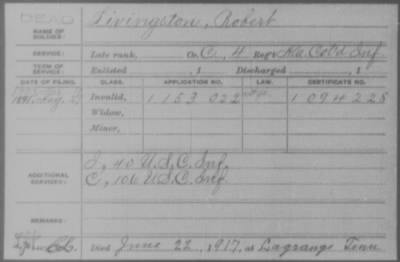 DEAD
NAME OF SOLDIER: Livingston, Robert
SERVICE: Late rank, Co. C, 4 Reg't Ala Col'd Inf.
TERM OF SERVICE: Enlisted , 1 Discharged , 1
DATE OF FILING. CLASS. APPLICATION NO. LAW. CERTIFICATE NO.
1891, Aug. 27 Invalid, 1153 022 1094225
Widow,
Minor,
ADDITIONAL SERVICES: I, 40 U.S.C. Inf.
C, 106 U.S.C. Inf.
REMARKS:
Died June 22, 1917, at Lagrange Tenn